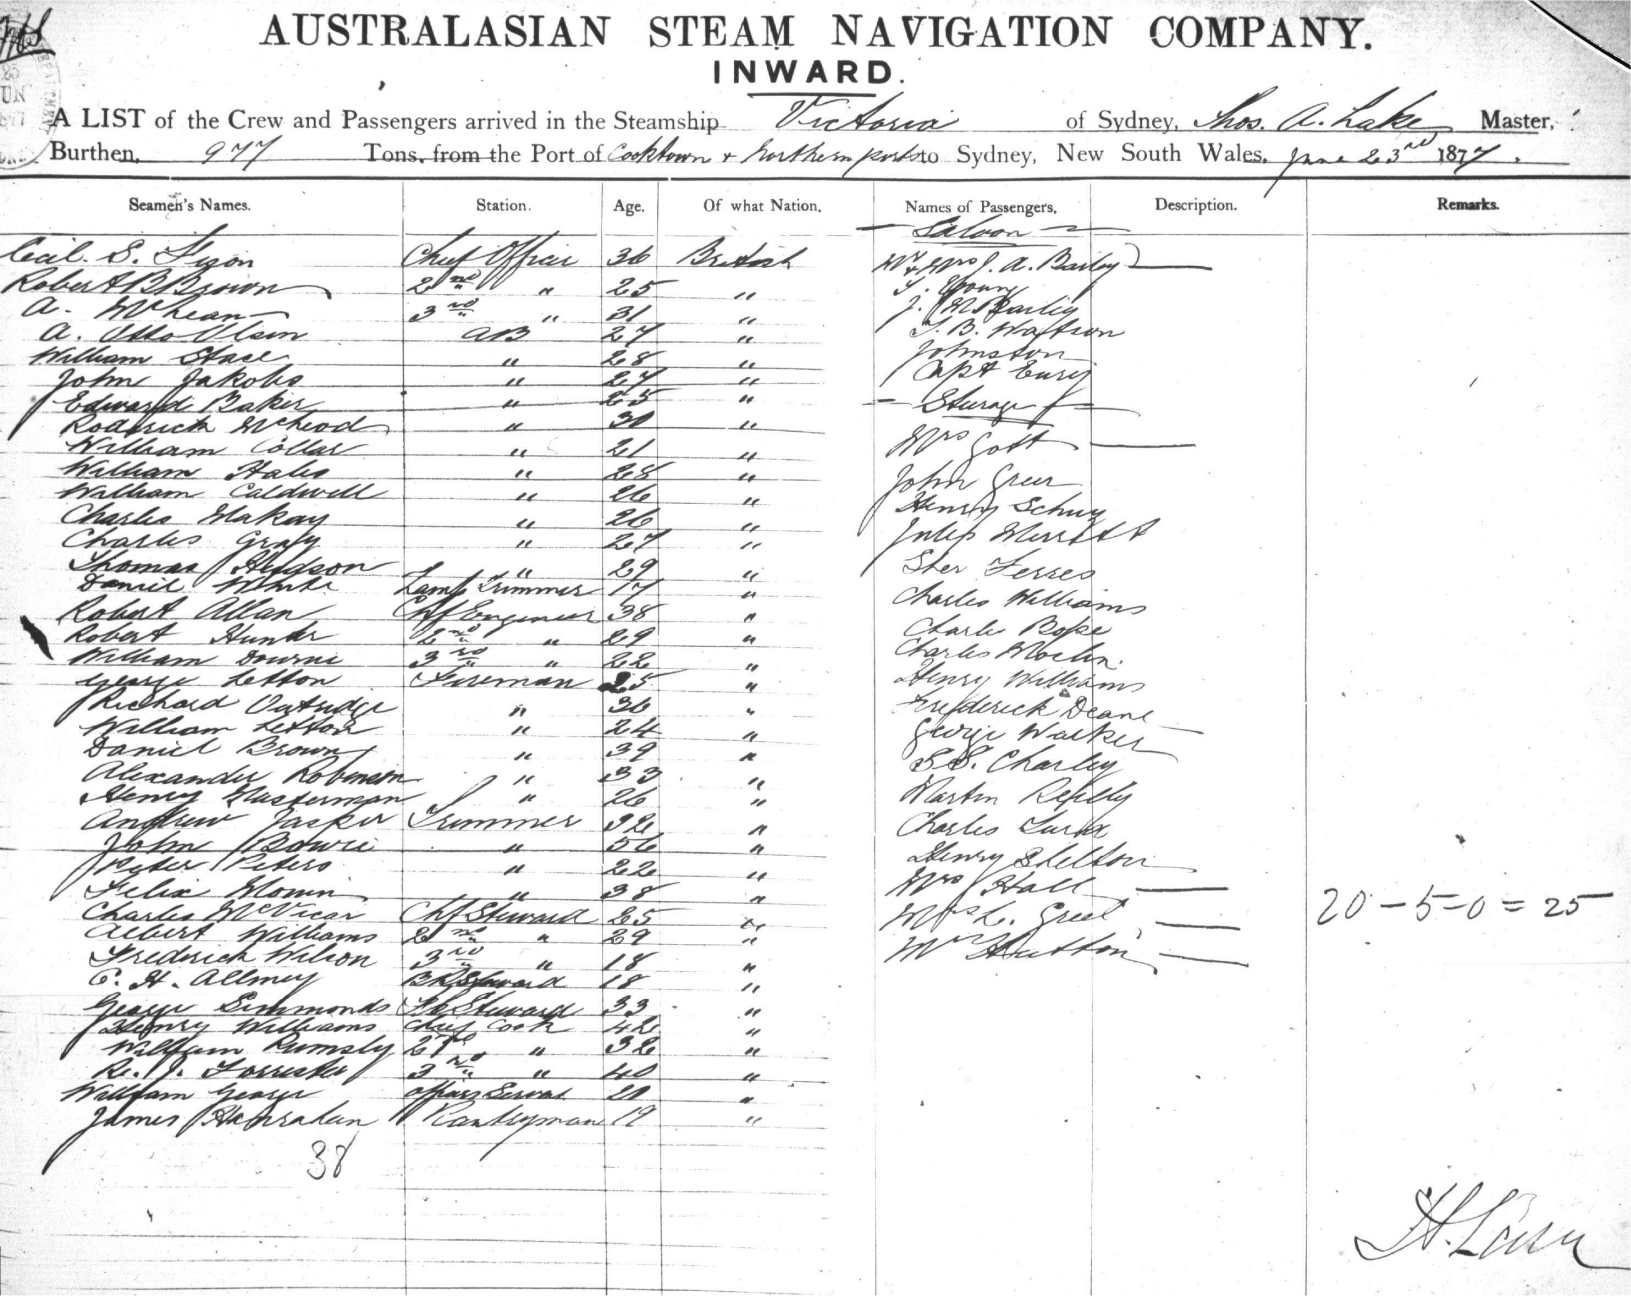 AUSTRALASIAN STEAM NAVIGATION COMPANY.
INWARD.
A LIST of the Crew and Passengers arrived in the Steamship Victoria of Sydney, Thos. A. Lake, Master,
Burthen, 977 Tons, from the Port of Cooktown & Northern ports to Sydney, New South Wales, June 23rd 1877.
Seamen's Names. Station. Age. Of what Nation. Names of Passengers, Description. Remarks.
Saloon
Cecil. S. Chief Officer 36 British Mr & Mrs J. A. Bailey
Robert B Brown 2nd " 25 " Young
A. McLean 3rd " 31 " J.
A. Otto Olsen AB 27 " T. B. Watson
William Stace " 28 " Johnston
John Jakobs " 27 " Capt
Edward Baker " 25 " Steerage
Roderick McLeod " 30 "
William Collar " 21 " Mrs Gott
William Hales " 28 "
William Caldwell " 26 " John Greer
Charles Makay " 26 " Henry
Charles Gray " 27 " Merritt
Thomas Hudson " 29 " Ferres
Daniel White Lamp Trimmer 17 " Charles Williams
Robert Allan Chf Engineer 38 " Charles
Robert Hunter 2nd " 29 " Charles
William Downie 3rd " 22 "
George Letton Fireman 25 " Henry Williams
Richard Outridge " 36 " Frederick Deane
William Letton " 24 " George Walker
Daniel Brown " 39 " S.S. Charley
Alexander Robinson " 33 "
Henry Masterman " 26 " Martin Reilly
Andrew Jasper Trimmer 32 " Charles
John Bowie " 56 "
Peter Peters " 22 " Henry Shelton
Felix " 38 " Mrs Hall
Charles McVicar Chf Steward 25 " Mrs L. 20 - 5 = 0 = 25
Albert Williams 2nd " 29 "
Frederick Wilson 3rd " 18 " Mrs Hutton
C. H. Allmey Steward 18 "
George Simmonds Steward 33 "
Henry Williams Chief Cook 42 "
William Rumsby 2nd " 32 "
Re. J. Forrester 3rd " 40 "
William George Officers Servant 20 "
James Hanrahan Pantryman 19 "
38